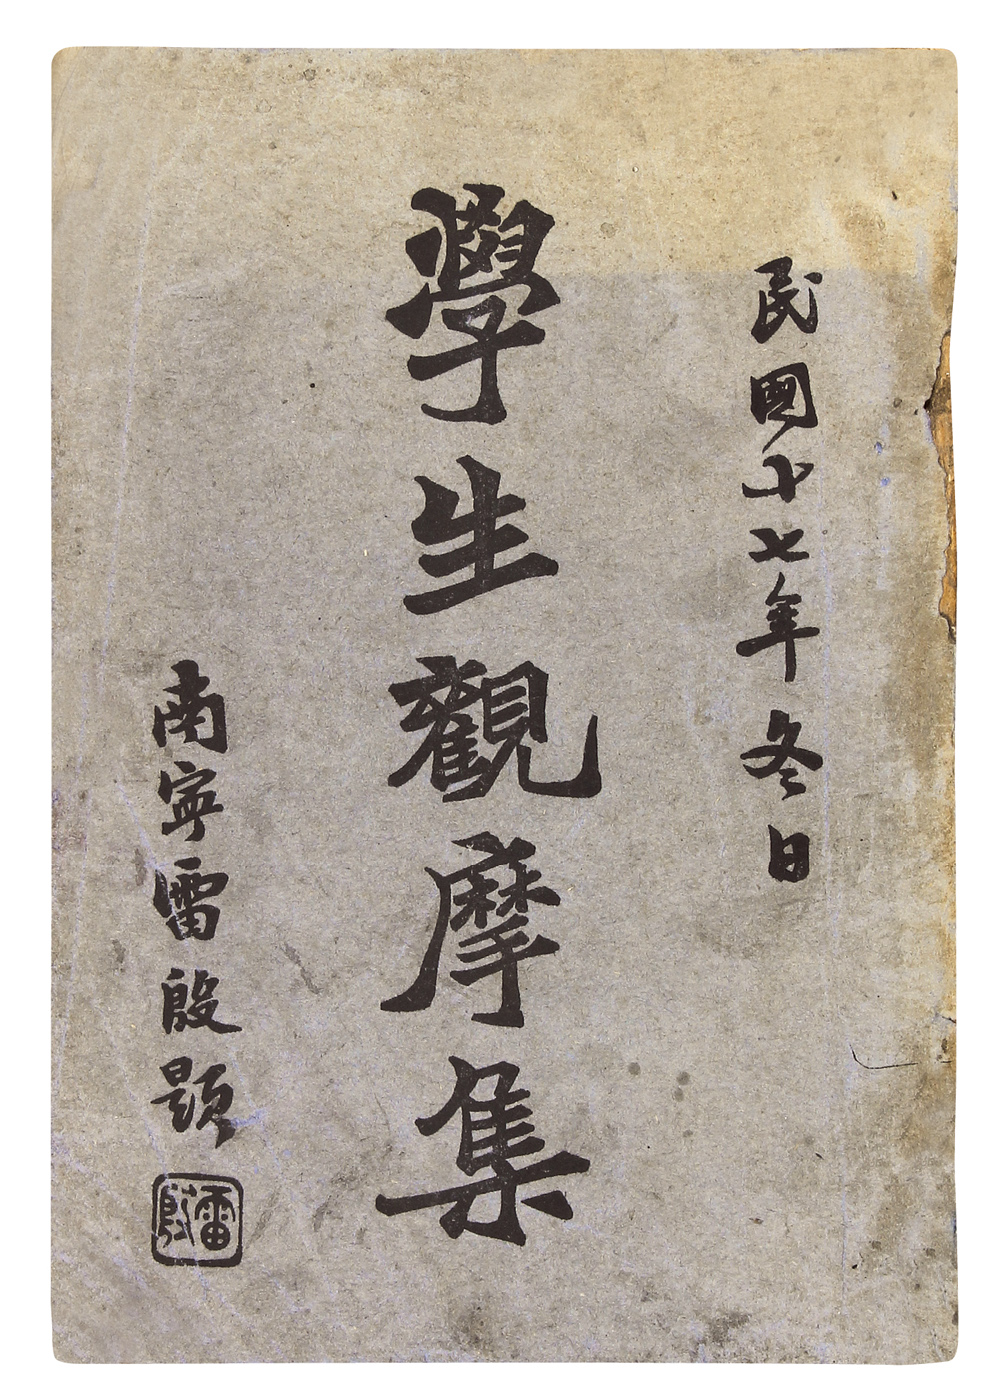 民國十七年冬日
學生觀摩集
南寧雷殷題
雷殷